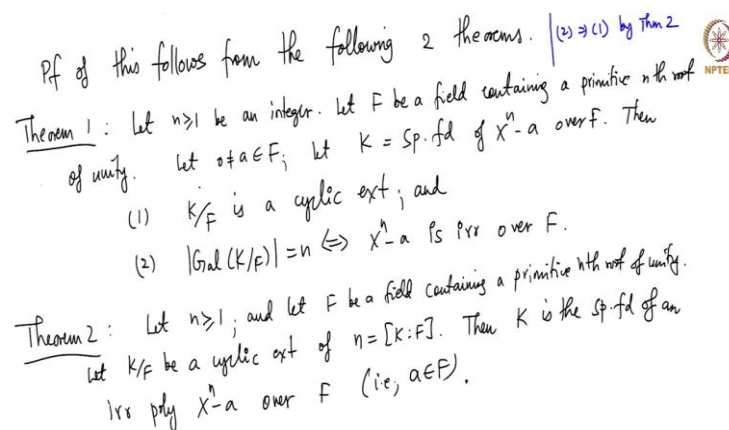 Pf of this follows from the following 2 theorems. | (2) ⇒ (1) by Thm 2
NPTEL
Theorem 1 : Let n≥1 be an integer. Let F be a field containing a primitive nth root
of unity. Let 0≠a∈F; let K = Sp. fd of Xⁿ-a over F. Then
(1) K/F is a cyclic ext; and
(2) |Gal(K/F)| = n ⇔ Xⁿ-a is irr over F.
Theorem 2 : Let n≥1, and let F be a field containing a primitive nth root of unity.
Let K/F be a cyclic ext of n = [K:F]. Then K is the sp. fd of an
irr poly Xⁿ-a over F (i.e., a∈F).